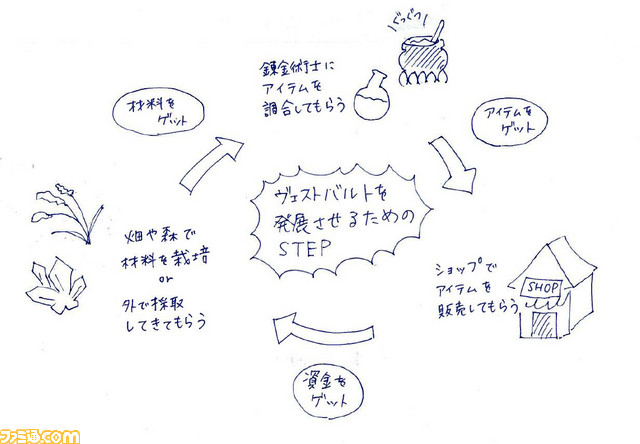 ぐつぐつ
錬金術士に
アイテムを
調合してもらう
材料を
ゲット
アイテムを
ゲット
ヴェストバルトを
発展させるための
STEP
畑や森で
材料を栽培
or
外で採取
してきてもらう
ショップで
アイテムを
販売してもらう
SHOP
資金を
ゲット
ファミ通com